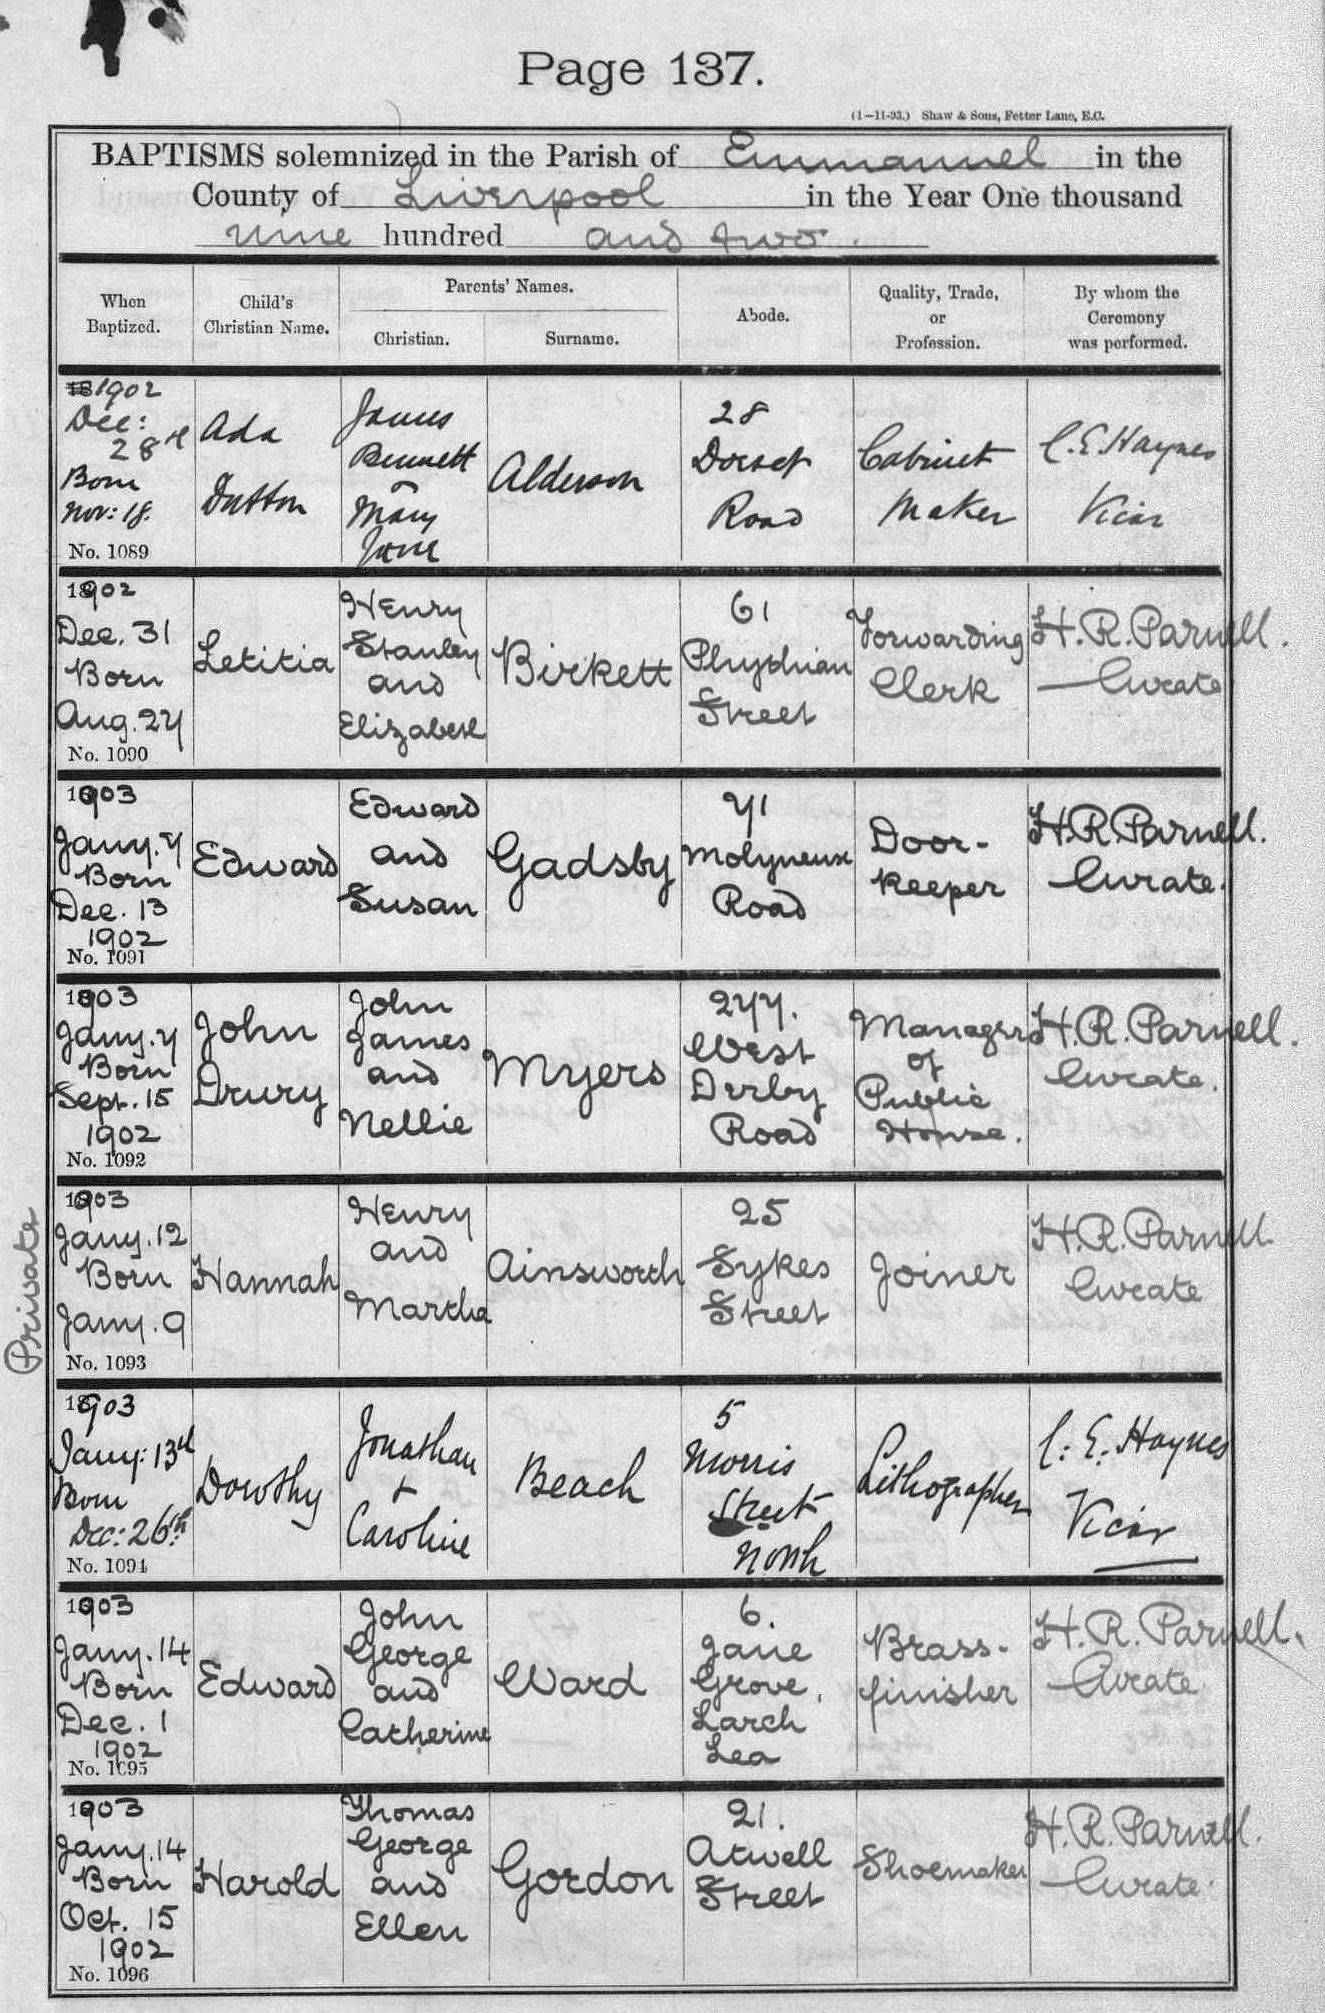 Page 137.
(1—11-93.) Shaw & Sons, Fetter Lane, E.C.
BAPTISMS solemnized in the Parish of Emmanuel in the
County of Liverpool in the Year One thousand
nine hundred and two.
When
Baptized.
Child's
Christian Name.
Parents' Names.
Christian.
Surname.
Abode.
Quality, Trade,
or
Profession.
By whom the
Ceremony
was performed.
1902
Dec:
28th
Born
Nov: 18.
No. 1089
Ada
Dutton
James
Bennett
Mary
Jane
Alderson
28
Dorset
Road
Cabinet
Maker
C. E. Haynes
Vicar
1902
Dec. 31
Born
Aug. 27
No. 1090
Letitia
Henry
Stanley
and
Elizabeth
Birkett
61
Phythian
Street
Forwarding
Clerk
H. R. Parnell.
Curate
1903
Jany. 7
Born
Dec. 13
1902
No. 1091
Edward
Edward
and
Susan
Gadsby
71
Molyneux
Road
Door-
keeper
H. R. Parnell.
Curate.
1903
Jany. 7
Born
Sept. 15
1902
No. 1092
John
Drury
John
James
and
Nellie
Myers
277.
West
Derby
Road
Manager
of
Public
House.
H. R. Parnell.
Curate.
Private
1903
Jany. 12
Born
Jany. 9
No. 1093
Hannah
Henry
and
Martha
Ainsworth
25
Sykes
Street
Joiner
H. R. Parnell.
Curate
1903
Jany: 13th
Born
Dec: 26th
No. 1094
Dorothy
Jonathan
+
Caroline
Beach
5
Morris
Street
North
Lithographer
C. E. Haynes
Vicar
1903
Jany. 14
Born
Dec. 1
1902
No. 1095
Edward
John
George
and
Catherine
Ward
6.
Jane
Grove,
Larch
Lea
Brass-
finisher
H. R. Parnell.
Curate.
1903
Jany. 14
Born
Oct. 15
1902
No. 1096
Harold
Thomas
George
and
Ellen
Gordon
21.
Atwell
Street
Shoemaker
H. R. Parnell.
Curate.